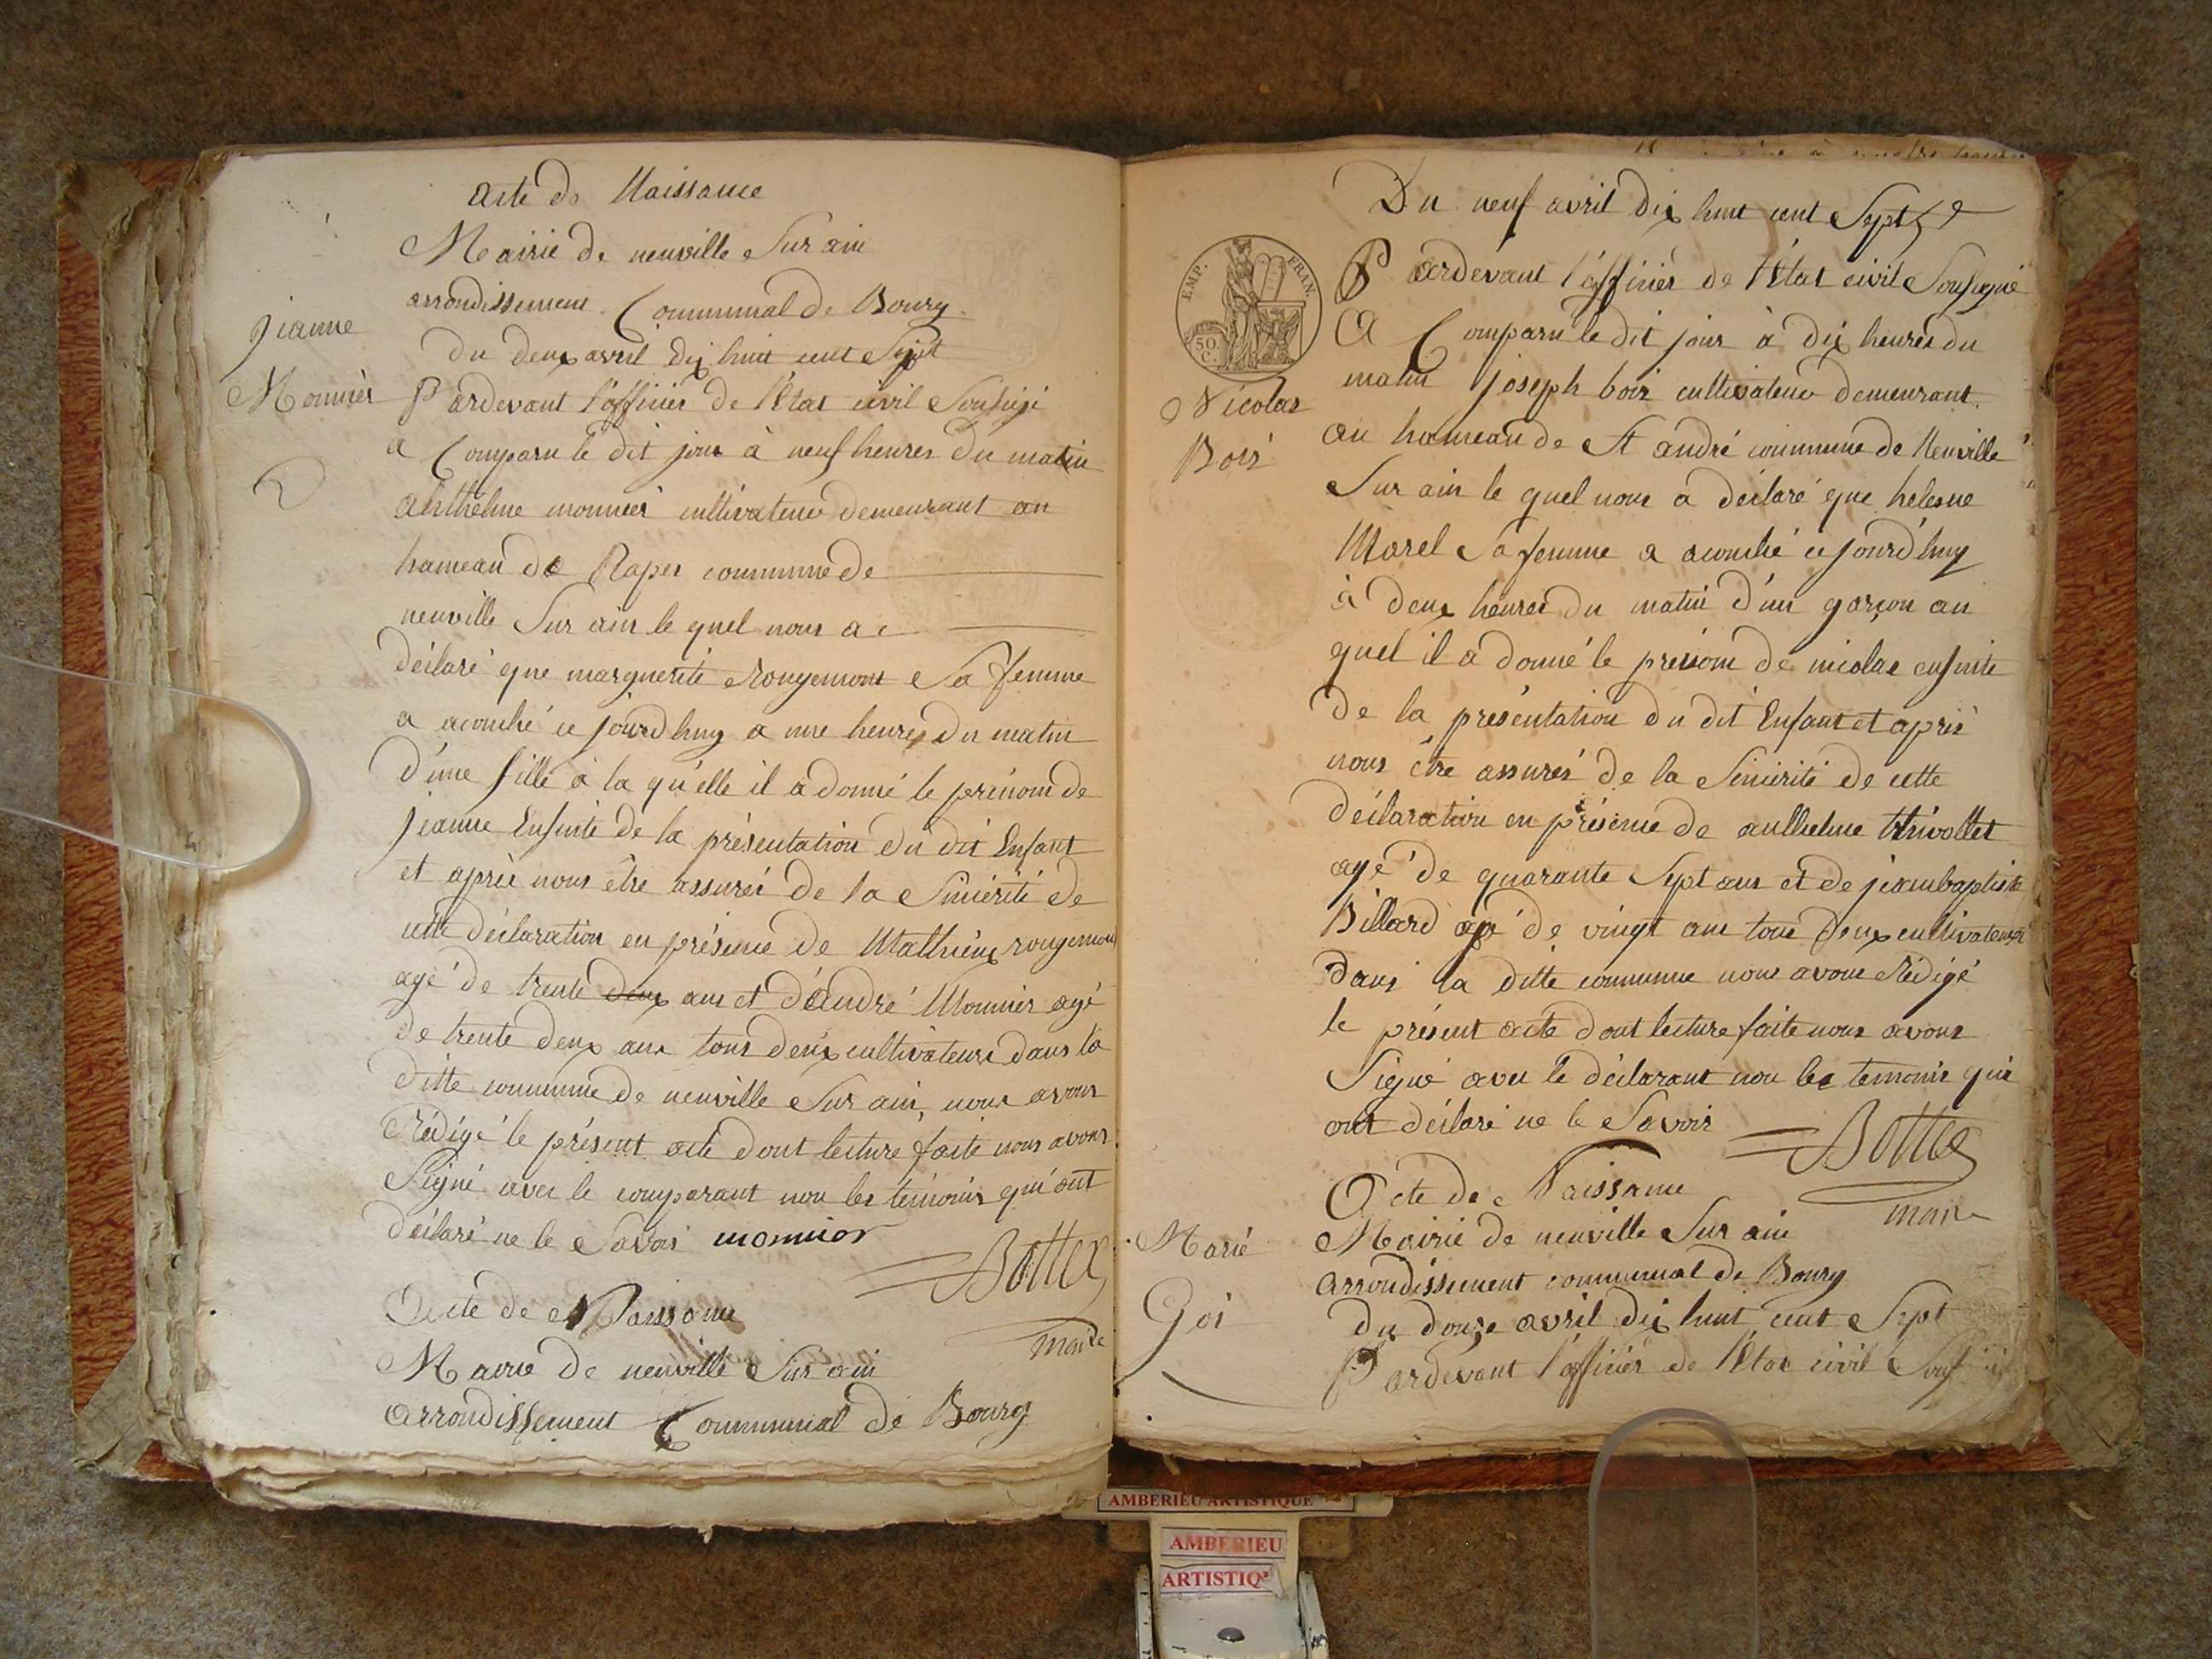 acte de Naissance
Mairie de neuville Sur ain
arrondissement Communal de Bourg
Jeanne
Monnier
du deux avril dix huit cent Sept
Pardevant l'officier de l'Etat civil Sousigné
a Comparu le dit jour à neuf heures du matin
anthelme monnier cultivateur demeurant au
hameau de Rapes commune de
neuville Sur ain le quel nous a
déclaré que marguerite rougemont Sa femme
a acouché ce jourd'huy a une heure du matin
d'une fille à la qu'elle il a donné le prénom de
jeanne Ensuite de la présentation du dit Enfant
et après nous être assurés de la Sincérité de
cette déclaration en présence de Mathieux rougemont
agé de trente deux ans et d'andré Monnier agé
de trente deux ans tous deux cultivateurs dans la
ditte commune de neuville Sur ain, nous avons
Rédigé le présent acte dont lecture faite nous avons
Signé avec le comparant non les témoins qui ont
déclaré ne le Savoir monnier
Bottex
maire
Acte de Naissance
Mairie de neuville Sur ain
arrondissement Communal de Bourg
Du neuf avril dix huit cent Sept
EMP. FRAN.
50 C.
Nicolas
Bois
Pardevant l'officier de l'Etat civil Sousigné
a Comparu le dit jour à dix heures du
matin joseph bois cultivateur demeurant
au hameau de St andré commune de Neuville
Sur ain le quel nous a déclaré que helesne
Morel Sa femme a acouché ce jourd'huy
à deux heures du matin d'un garçon au
quel il a donné le prenom de nicolas ensuite
de la présentation du dit Enfant et après
nous être assurés de la Sincérité de cette
déclaration en présence de anthelme thivollet
agé de quarante Sept ans et de jeanbaptiste
Billard agé de vingt ans tous deux cultivateurs
dans la ditte commune nous avons Rédigé
le présent acte dont lecture faite nous avons
Signé avec le déclarant non les temoins qui
ont déclaré ne le Savoir
Bottex
maire
Acte de Naissance
Mairie de neuville Sur ain
arrondissement communal de Bourg
Marie
Goi
du douze avril dix huit cent Sept
Pardevant l'officier de l'Etat civil
AMBERIEU ARTISTIQUE
AMBERIEU
ARTISTIQ